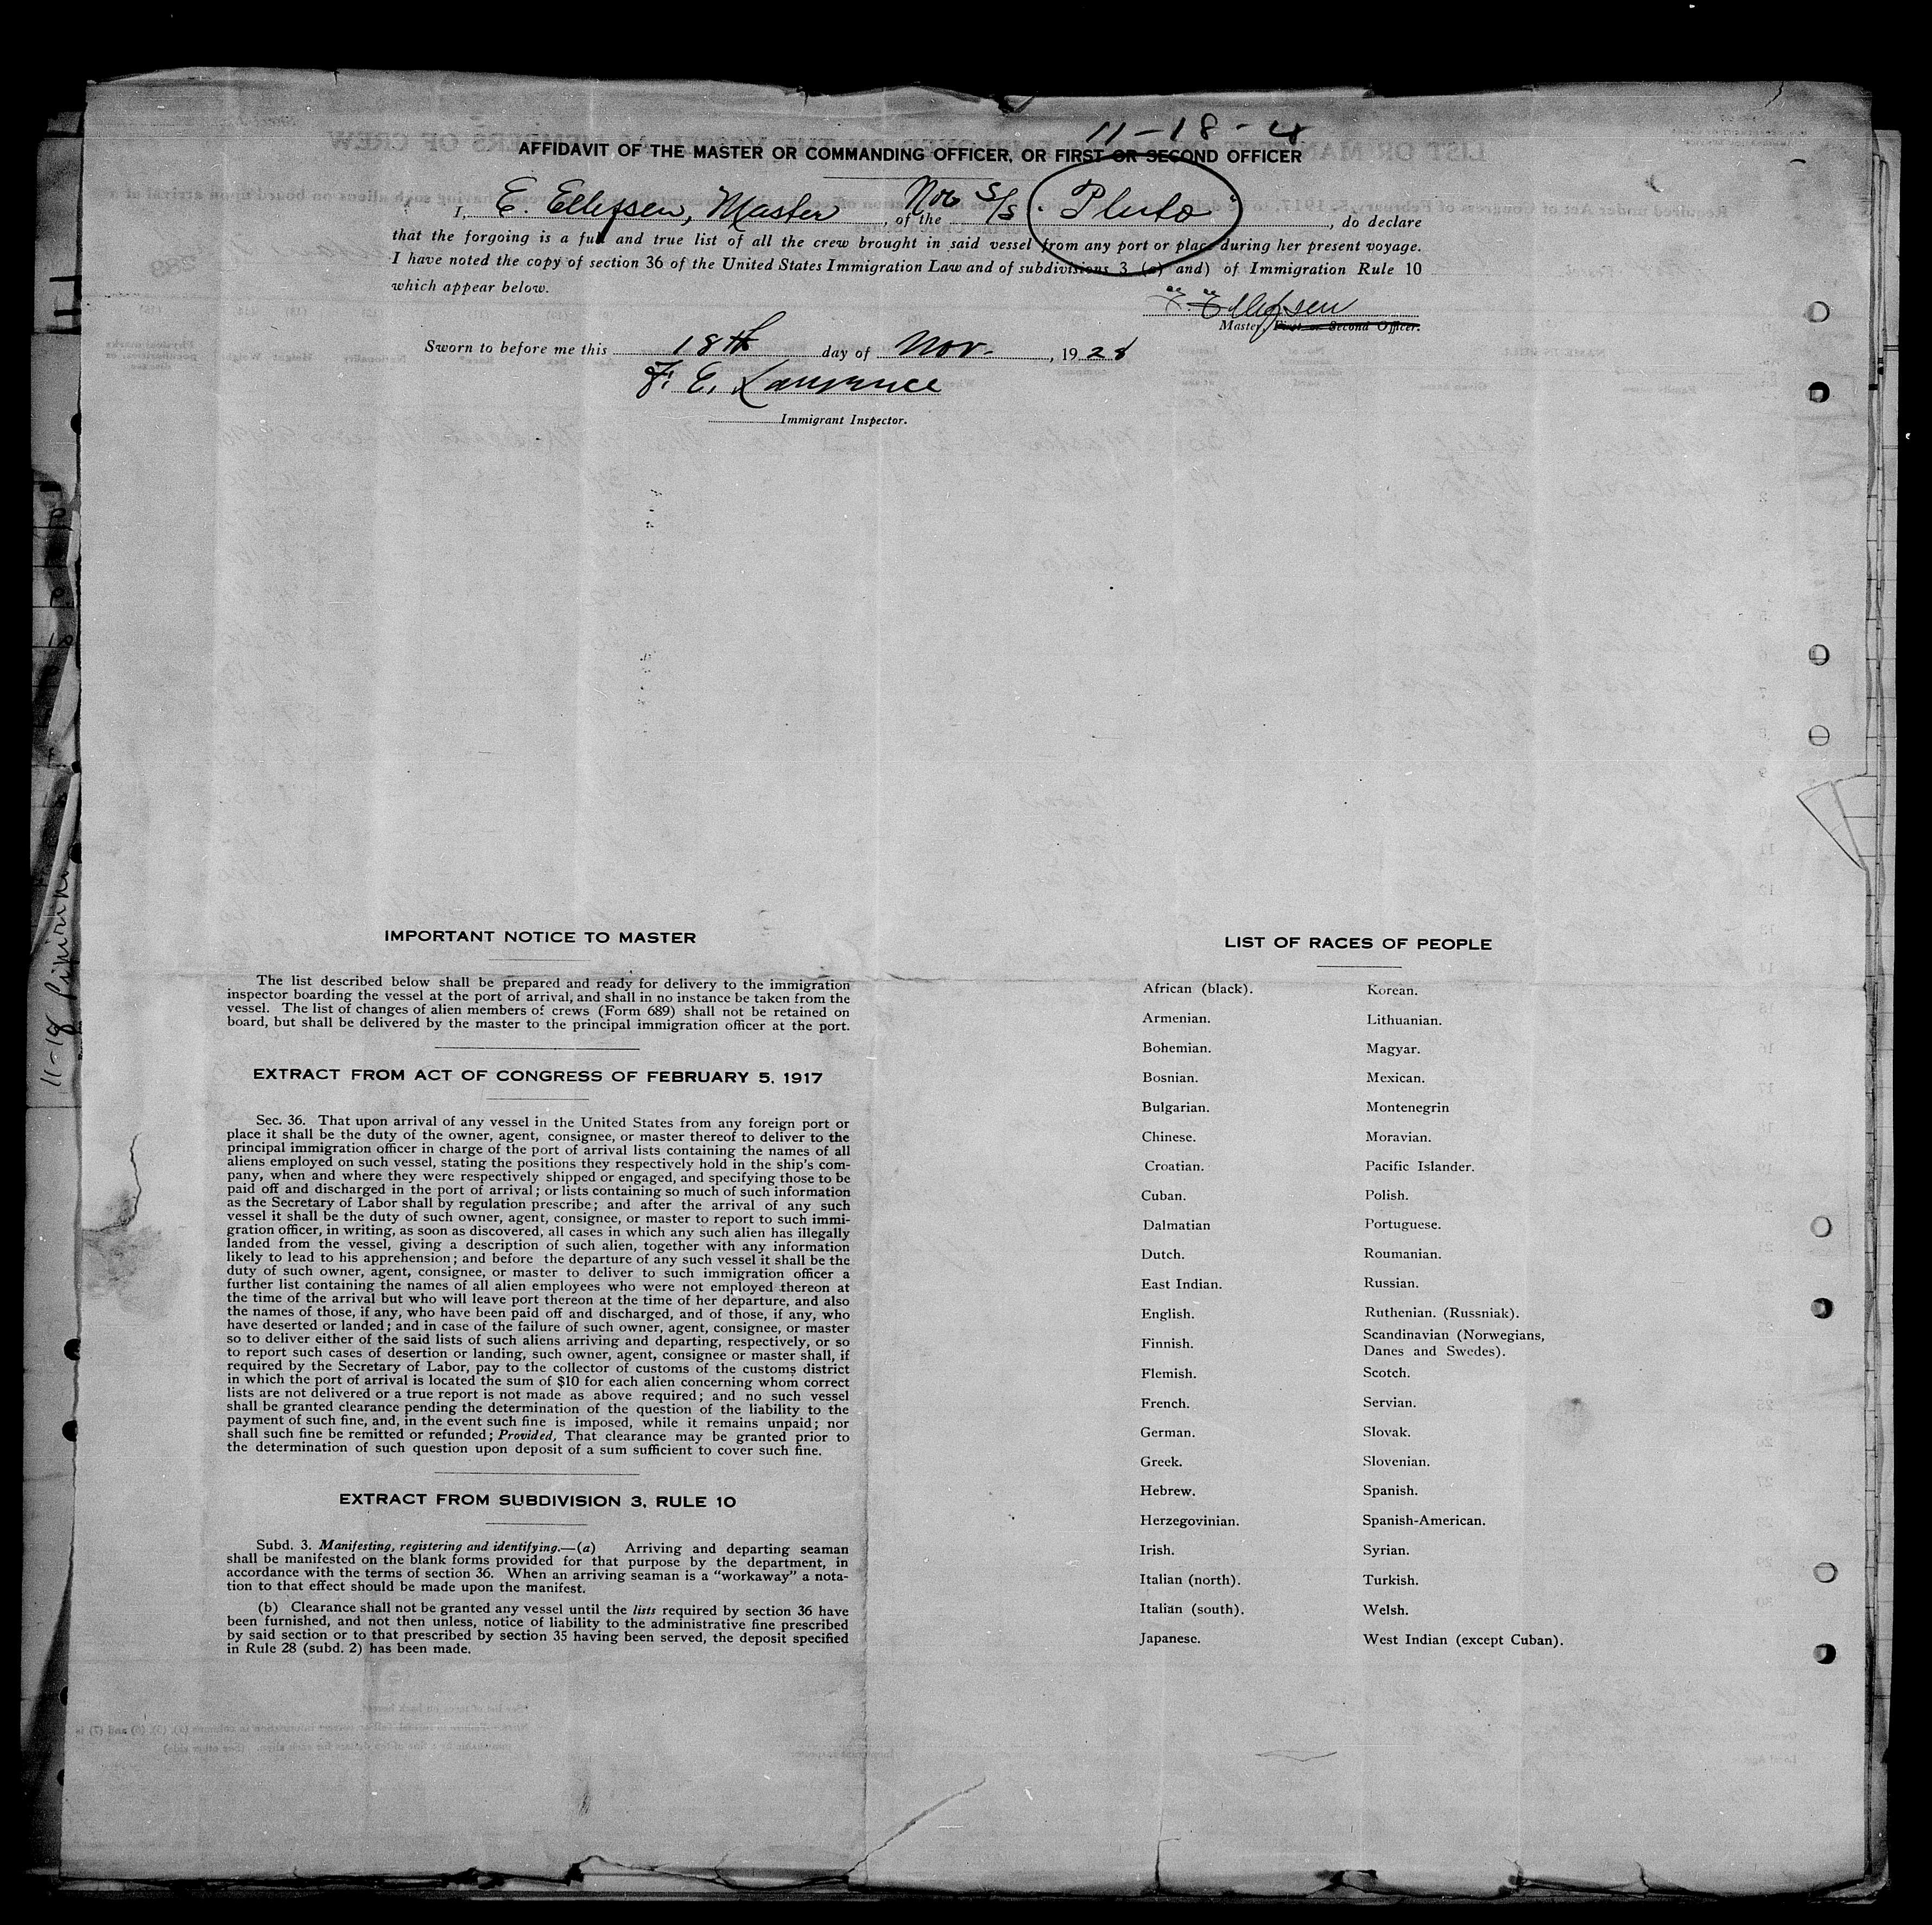 11-18-4
AFFIDAVIT OF THE MASTER OR COMMANDING OFFICER, OR FIRST OR SECOND OFFICER
I, E. Ellefsen, Master, of the Nor S/S. Pluto, do declare
that the forgoing is a full and true list of all the crew brought in said vessel from any port or place during her present voyage.
I have noted the copy of section 36 of the United States Immigration Law and of subdivisions 3 (a) and) of Immigration Rule 10
which appear below.
E. Ellefsen
Master, First or Second Officer.
Sworn to before me this 18th day of Nov., 1928
F. E. Lawrence
Immigrant Inspector.
IMPORTANT NOTICE TO MASTER
The list described below shall be prepared and ready for delivery to the immigration
inspector boarding the vessel at the port of arrival, and shall in no instance be taken from the
vessel. The list of changes of alien members of crews (Form 689) shall not be retained on
board, but shall be delivered by the master to the principal immigration officer at the port.
EXTRACT FROM ACT OF CONGRESS OF FEBRUARY 5, 1917
Sec. 36. That upon arrival of any vessel in the United States from any foreign port or
place it shall be the duty of the owner, agent, consignee, or master thereof to deliver to the
principal immigration officer in charge of the port of arrival lists containing the names of all
aliens employed on such vessel, stating the positions they respectively hold in the ship's com-
pany, when and where they were respectively shipped or engaged, and specifying those to be
paid off and discharged in the port of arrival; or lists containing so much of such information
as the Secretary of Labor shall by regulation prescribe; and after the arrival of any such
vessel it shall be the duty of such owner, agent, consignee, or master to report to such immi-
gration officer, in writing, as soon as discovered, all cases in which any such alien has illegally
landed from the vessel, giving a description of such alien, together with any information
likely to lead to his apprehension; and before the departure of any such vessel it shall be the
duty of such owner, agent, consignee, or master to deliver to such immigration officer a
further list containing the names of all alien employees who were not employed thereon at
the time of the arrival but who will leave port thereon at the time of her departure, and also
the names of those, if any, who have been paid off and discharged, and of those, if any, who
have deserted or landed; and in case of the failure of such owner, agent, consignee, or master
so to deliver either of the said lists of such aliens arriving and departing, respectively, or so
to report such cases of desertion or landing, such owner, agent, consignee or master shall, if
required by the Secretary of Labor, pay to the collector of customs of the customs district
in which the port of arrival is located the sum of $10 for each alien concerning whom correct
lists are not delivered or a true report is not made as above required; and no such vessel
shall be granted clearance pending the determination of the question of the liability to the
payment of such fine, and, in the event such fine is imposed, while it remains unpaid; nor
shall such fine be remitted or refunded; Provided, That clearance may be granted prior to
the determination of such question upon deposit of a sum sufficient to cover such fine.
EXTRACT FROM SUBDIVISION 3, RULE 10
Subd. 3. Manifesting, registering and identifying.—(a) Arriving and departing seaman
shall be manifested on the blank forms provided for that purpose by the department, in
accordance with the terms of section 36. When an arriving seaman is a "workaway" a nota-
tion to that effect should be made upon the manifest.
(b) Clearance shall not be granted any vessel until the lists required by section 36 have
been furnished, and not then unless, notice of liability to the administrative fine prescribed
by said section or to that prescribed by section 35 having been served, the deposit specified
in Rule 28 (subd. 2) has been made.
LIST OF RACES OF PEOPLE
African (black).
Armenian.
Bohemian.
Bosnian.
Bulgarian.
Chinese.
Croatian.
Cuban.
Dalmatian
Dutch.
East Indian.
English.
Finnish.
Flemish.
French.
German.
Greek.
Hebrew.
Herzegovinian.
Irish.
Italian (north).
Italian (south).
Japanese.
Korean.
Lithuanian.
Magyar.
Mexican.
Montenegrin
Moravian.
Pacific Islander.
Polish.
Portuguese.
Roumanian.
Russian.
Ruthenian. (Russniak).
Scandinavian (Norwegians,
Danes and Swedes).
Scotch.
Servian.
Slovak.
Slovenian.
Spanish.
Spanish-American.
Syrian.
Turkish.
Welsh.
West Indian (except Cuban).